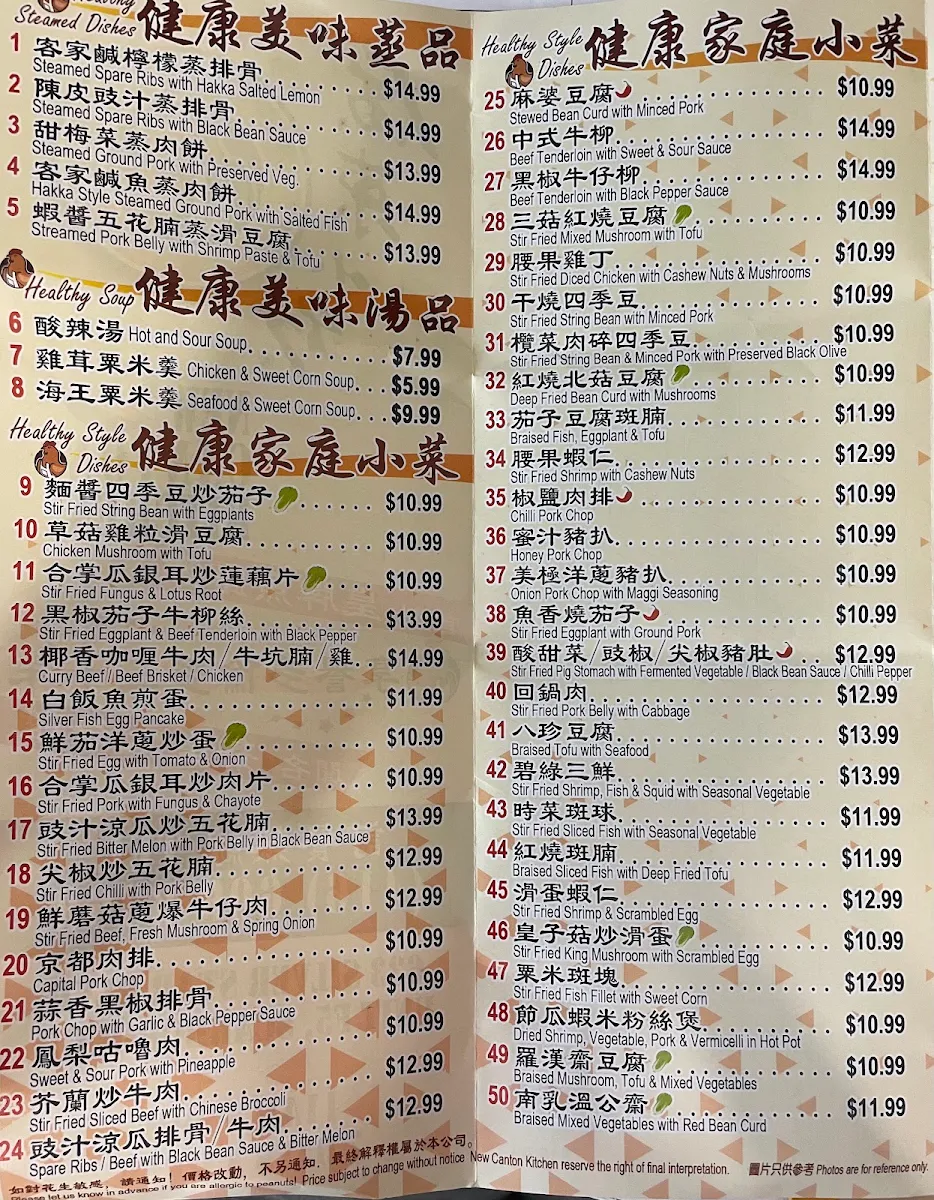 Healthy
Steamed Dishes 健康美味蒸品
1 客家鹹檸檬蒸排骨........ $14.99
Steamed Spare Ribs with Hakka Salted Lemon
2 陳皮豉汁蒸排骨.......... $14.99
Steamed Spare Ribs with Black Bean Sauce
3 甜梅菜蒸肉餅............ $13.99
Steamed Ground Pork with Preserved Veg.
4 客家鹹魚蒸肉餅.......... $14.99
Hakka Style Steamed Ground Pork with Salted Fish
5 蝦醬五花腩蒸滑豆腐...... $13.99
Streamed Pork Belly with Shrimp Paste & Tofu
Healthy Soup 健康美味湯品
6 酸辣湯 Hot and Sour Soup.......... $7.99
7 雞茸粟米羹 Chicken & Sweet Corn Soup... $5.99
8 海王粟米羹 Seafood & Sweet Corn Soup... $9.99
Healthy Style
Dishes 健康家庭小菜
9 麵醬四季豆炒茄子...... $10.99
Stir Fried String Bean with Eggplants
10 草菇雞粒滑豆腐......... $10.99
Chicken Mushroom with Tofu
11 合掌瓜銀耳炒蓮藕片.... $10.99
Stir Fried Fungus & Lotus Root
12 黑椒茄子牛柳絲......... $13.99
Stir Fried Eggplant & Beef Tenderloin with Black Pepper
13 椰香咖喱牛肉/牛坑腩/雞.. $14.99
Curry Beef / Beef Brisket / Chicken
14 白飯魚煎蛋............. $11.99
Silver Fish Egg Pancake
15 鮮茄洋蔥炒蛋......... $10.99
Stir Fried Egg with Tomato & Onion
16 合掌瓜銀耳炒肉片....... $10.99
Stir Fried Pork with Fungus & Chayote
17 豉汁涼瓜炒五花腩....... $13.99
Stir Fried Bitter Melon with Pork Belly in Black Bean Sauce
18 尖椒炒五花腩........... $12.99
Stir Fried Chilli with Pork Belly
19 鮮蘑菇蔥爆牛仔肉....... $12.99
Stir Fried Beef, Fresh Mushroom & Spring Onion
20 京都肉排............... $10.99
Capital Pork Chop
21 蒜香黑椒排骨........... $10.99
Pork Chop with Garlic & Black Pepper Sauce
22 鳳梨咕嚕肉............. $10.99
Sweet & Sour Pork with Pineapple
23 芥蘭炒牛肉............. $12.99
Stir Fried Sliced Beef with Chinese Broccoli
24 豉汁涼瓜排骨/牛肉...... $12.99
Spare Ribs / Beef with Black Bean Sauce & Bitter Melon
Healthy Style
Dishes 健康家庭小菜
25 麻婆豆腐............. $10.99
Stewed Bean Curd with Minced Pork
26 中式牛柳............. $14.99
Beef Tenderloin with Sweet & Sour Sauce
27 黑椒牛仔柳........... $14.99
Beef Tenderloin with Black Pepper Sauce
28 三菇紅燒豆腐........ $10.99
Stir Fried Mixed Mushroom with Tofu
29 腰果雞丁............. $10.99
Stir Fried Diced Chicken with Cashew Nuts & Mushrooms
30 干燒四季豆........... $10.99
Stir Fried String Bean with Minced Pork
31 欖菜肉碎四季豆....... $10.99
Stir Fried String Bean & Minced Pork with Preserved Black Olive
32 紅燒北菇豆腐........ $10.99
Deep Fried Bean Curd with Mushrooms
33 茄子豆腐斑腩......... $11.99
Braised Fish, Eggplant & Tofu
34 腰果蝦仁............. $12.99
Stir Fried Shrimp with Cashew Nuts
35 椒鹽肉排............ $10.99
Chilli Pork Chop
36 蜜汁豬扒............. $10.99
Honey Pork Chop
37 美極洋蔥豬扒......... $10.99
Onion Pork Chop with Maggi Seasoning
38 魚香燒茄子........... $10.99
Stir Fried Eggplant with Ground Pork
39 酸甜菜/豉椒/尖椒豬肚.. $12.99
Stir Fried Pig Stomach with Fermented Vegetable / Black Bean Sauce / Chilli Pepper
40 回鍋肉............... $12.99
Stir Fried Pork Belly with Cabbage
41 八珍豆腐............. $13.99
Braised Tofu with Seafood
42 碧綠三鮮............. $13.99
Stir Fried Shrimp, Fish & Squid with Seasonal Vegetable
43 時菜斑球............. $11.99
Stir Fried Sliced Fish with Seasonal Vegetable
44 紅燒斑腩............. $11.99
Braised Sliced Fish with Deep Fried Tofu
45 滑蛋蝦仁............. $12.99
Stir Fried Shrimp & Scrambled Egg
46 皇子菇炒滑蛋........ $10.99
Stir Fried King Mushroom with Scrambled Egg
47 粟米斑塊............. $12.99
Stir Fried Fish Fillet with Sweet Corn
48 節瓜蝦米粉絲煲....... $10.99
Dried Shrimp, Vegetable, Pork & Vermicelli in Hot Pot
49 羅漢齋豆腐.......... $10.99
Braised Mushroom, Tofu & Mixed Vegetables
50 南乳溫公齋.......... $11.99
Braised Mixed Vegetables with Red Bean Curd
如對花生敏感，請通知！價格改動，不另通知．最終解釋權屬於本公司。
Please let us know in advance if you are allergic to peanuts! Price subject to change without notice New Canton Kitchen reserve the right of final interpretation. 圖片只供參考 Photos are for reference only.